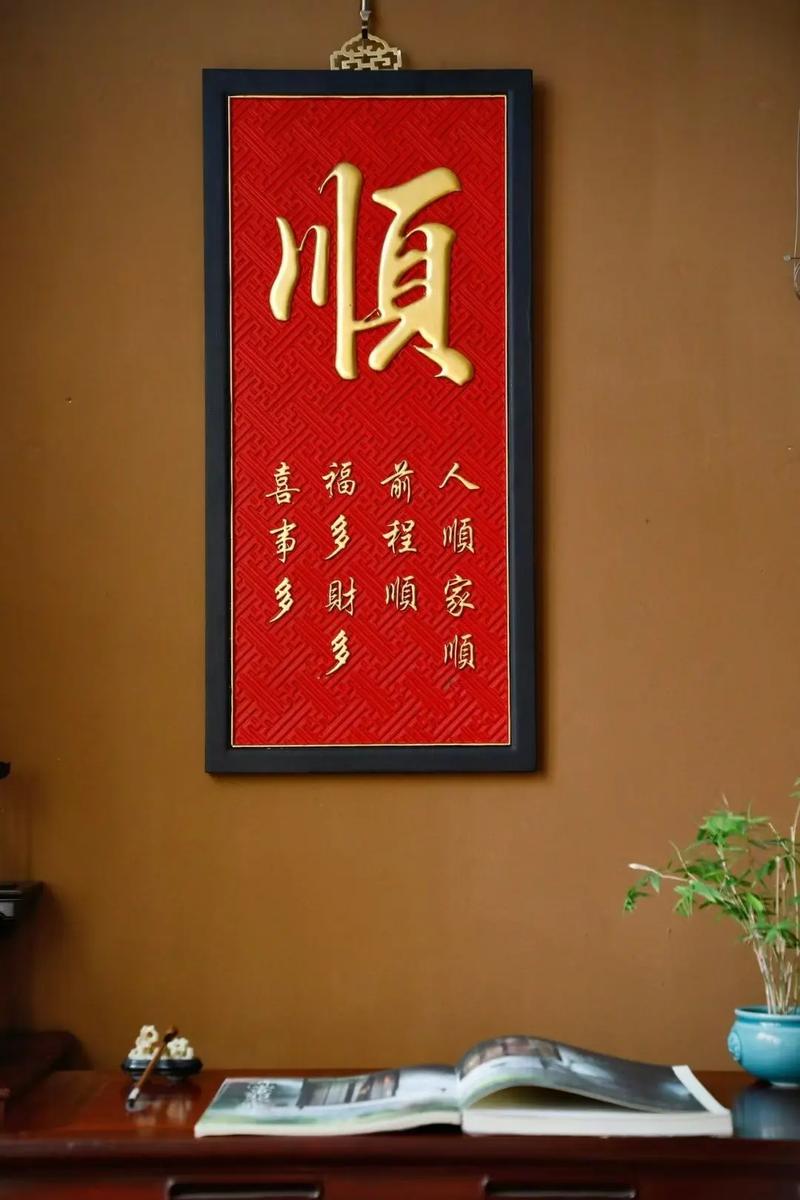 順
人順家順
前程順
福多財多
喜事多